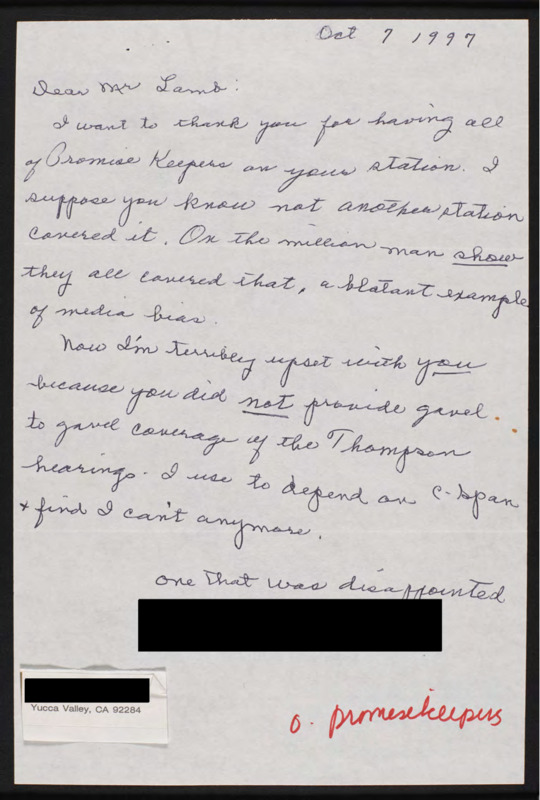 Oct 7 1997
Dear Mr Lamb:
I want to thank you for having all
of Promise Keepers on your station. I
suppose you know not another station
covered it. On the million man show
they all covered that, a blatant example
of media bias.
Now I'm terribley upset with you
because you did not provide gavel
to gavel coverage of the Thompson
hearings. I use to depend on C-Span
+ find I can't anymore.
one that was disappointed
Yucca Valley, CA 92284
o. promisekeepers